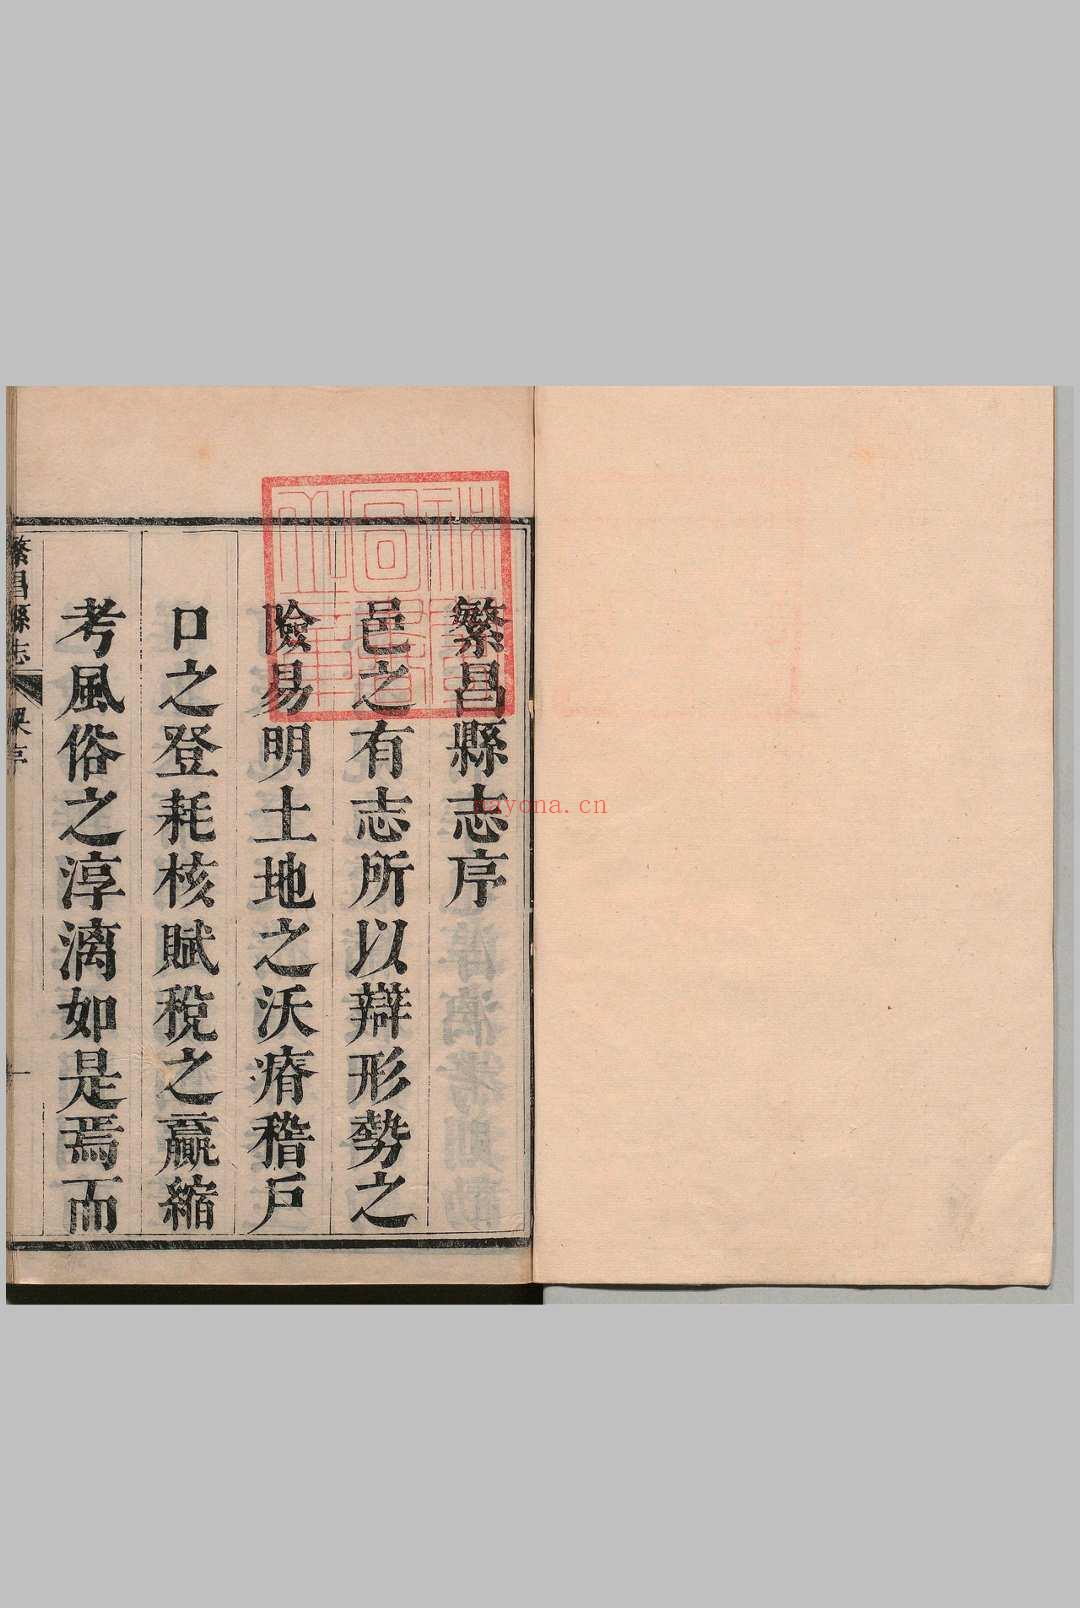 繁昌縣志序
邑之有志所以辯形勢之
險易明土地之沃瘠稽戶
口之登耗核賦稅之贏縮
考風俗之淳漓如是焉而
繁昌縣志
序
一
nayona.cn